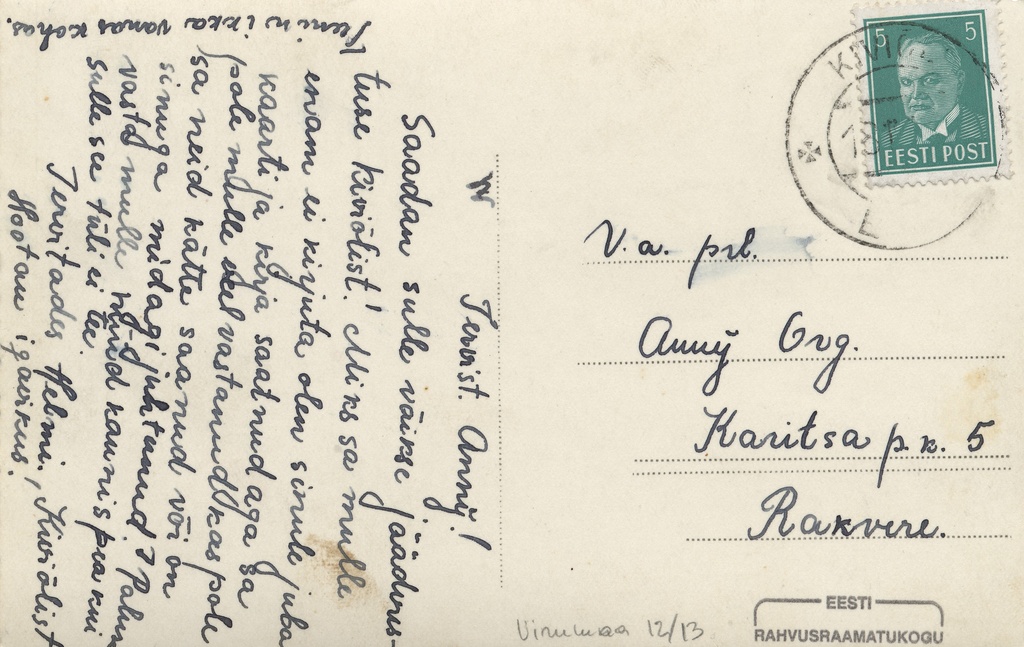 Tervist. Anny!
Saadan sulle väikse jäädvus-
tuse kiviõlist! Miks sa mulle
enam ei kirjuta olen sinule juba
kaarti ja kirja saatnud aga sa
pole mulle veel vastanud kas pole
sa neid kätte saanud või on
sinuga midagi juhtunud? Palun
vasta mulle nüüd kaunis pea kui
sulle see tüli ei tee.
Tervitades Helmi, Kiviõlist
Ootan igavikus.
Leenin ikka vanas kohas.
V.a. prl.
Anny Org.
Karitsa p.k. 5
Rakvere.
5 5
EESTI POST
KIVIÕ
Virumaa 12/13
EESTI
RAHVUSRAAMATUKOGU